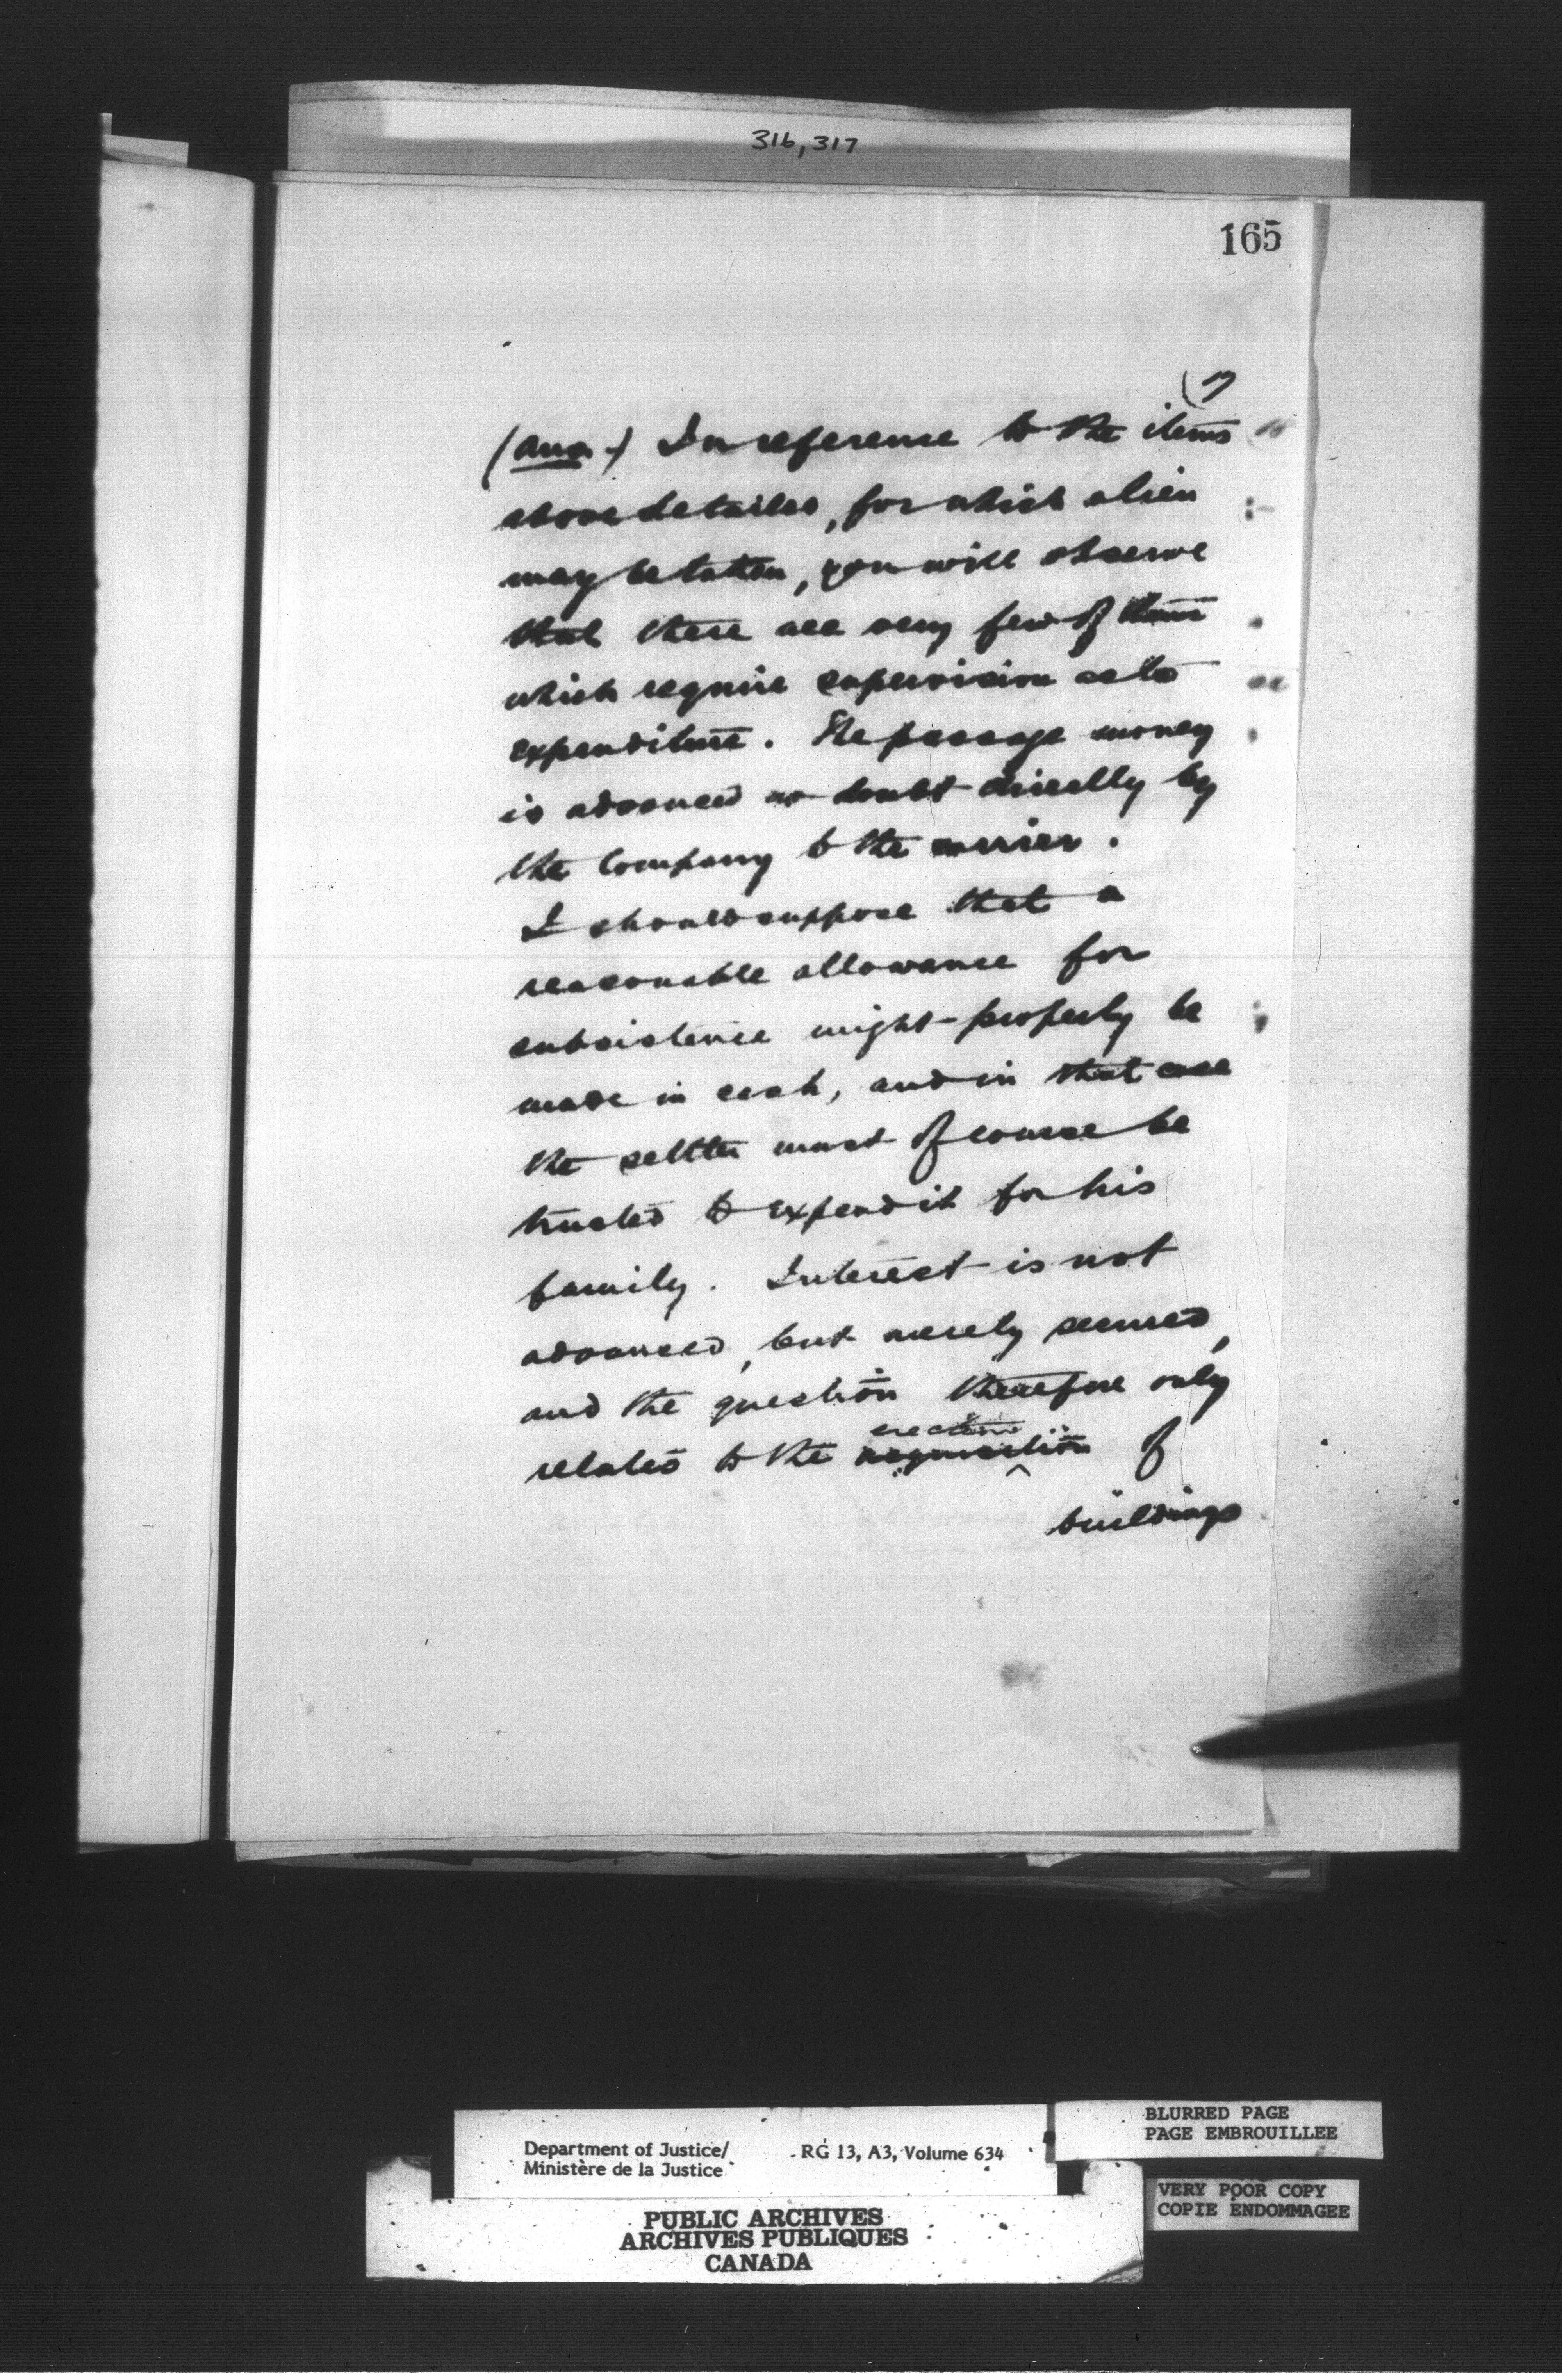 316, 317
165
(17
(Ans.) In reference to the items
above detailed, for which a lien
may be taken, you will observe
that there are very few of them
which require supervision as to
expenditure. The passage money
is advanced no doubt directly by
the Company to the carrier.
I should suppose that a
reasonable allowance for
subsistence might properly be
made in cash, and in that case
the settler must of course be
trusted to expend it for his
family. Interest is not
advanced, but merely secured,
and the question therefore only
erection
relates to the acquisition of
buildings
Department of Justice/ RG 13, A3, Volume 634
Ministère de la Justice
PUBLIC ARCHIVES
ARCHIVES PUBLIQUES
CANADA
BLURRED PAGE
PAGE EMBROUILLEE
VERY POOR COPY
COPIE ENDOMMAGEE